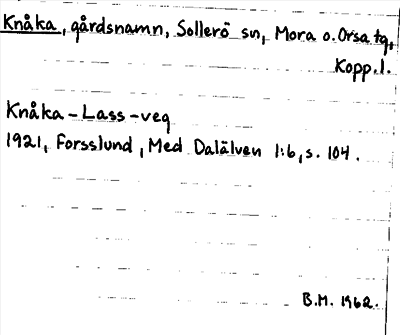 Knåka, gårdsnamn, Sollerö sn, Mora o. Orsa tg,
Kopp.l.
Knåka-Lass-veg
1921, Forsslund, Med Dalälven 1:6, s. 104.
B.M. 1962.